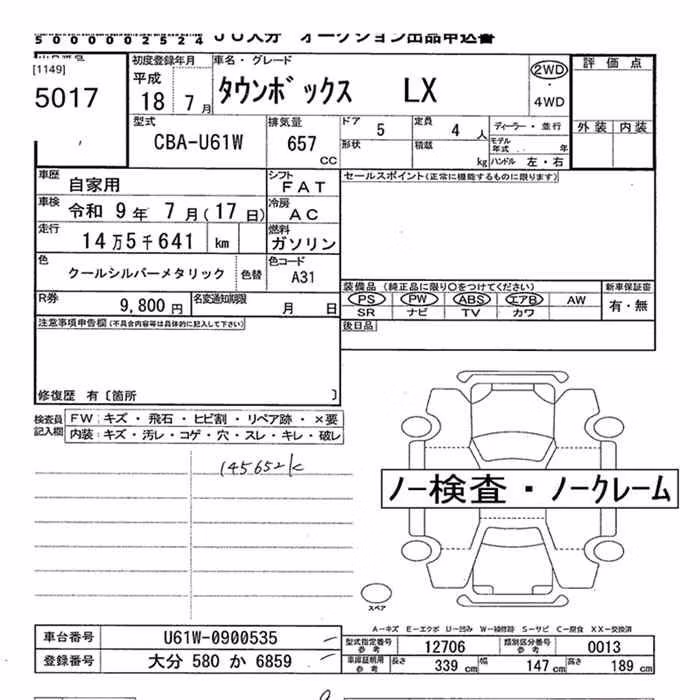 500002524 JU大分 オークション出品申込書
[1149]
5017
初度登録年月
平成
18 7月
車名・グレード
タウンボックス LX
2WD
・
4WD
評価点
外装 内装
型式
CBA-U61W
排気量
657
CC
ドア
5
定員
4 人
形状
積載
kg
ディーラー・並行
モデル年式 年
ハンドル 左・右
車歴
自家用
シフト
FAT
セールスポイント(正常に機能するものに限ります)
車検
令和 9年 7月(17日)
冷房
AC
走行
14万5千641 km
燃料
ガソリン
色
クールシルバーメタリック
色替
色コード
A31
装備品 (純正品に限り○をつけてください)
新車保証書
PS PW ABS エアB AW
SR ナビ TV カワ
有・無
R券
9,800円
名変通知期限
月 日
後日品
注意事項申告欄(不具合内容等は具体的に記入して下さい)
修復歴 有〔箇所 〕
検査員記入欄
FW:キズ・飛石・ヒビ割・リペア跡・×要
内装:キズ・汚レ・コゲ・穴・スレ・キレ・破レ
145652K
ノー検査・ノークレーム
スペア
A―キズ E―エクボ U―凹み W―補修跡 S―サビ C―腐食 XX―交換済
車台番号
U61W-0900535
型式指定番号参考
12706
類別区分番号参考
0013
登録番号
大分 580 か 6859
車庫証明用参考
長さ
339 cm
幅
147 cm
高さ
189 cm